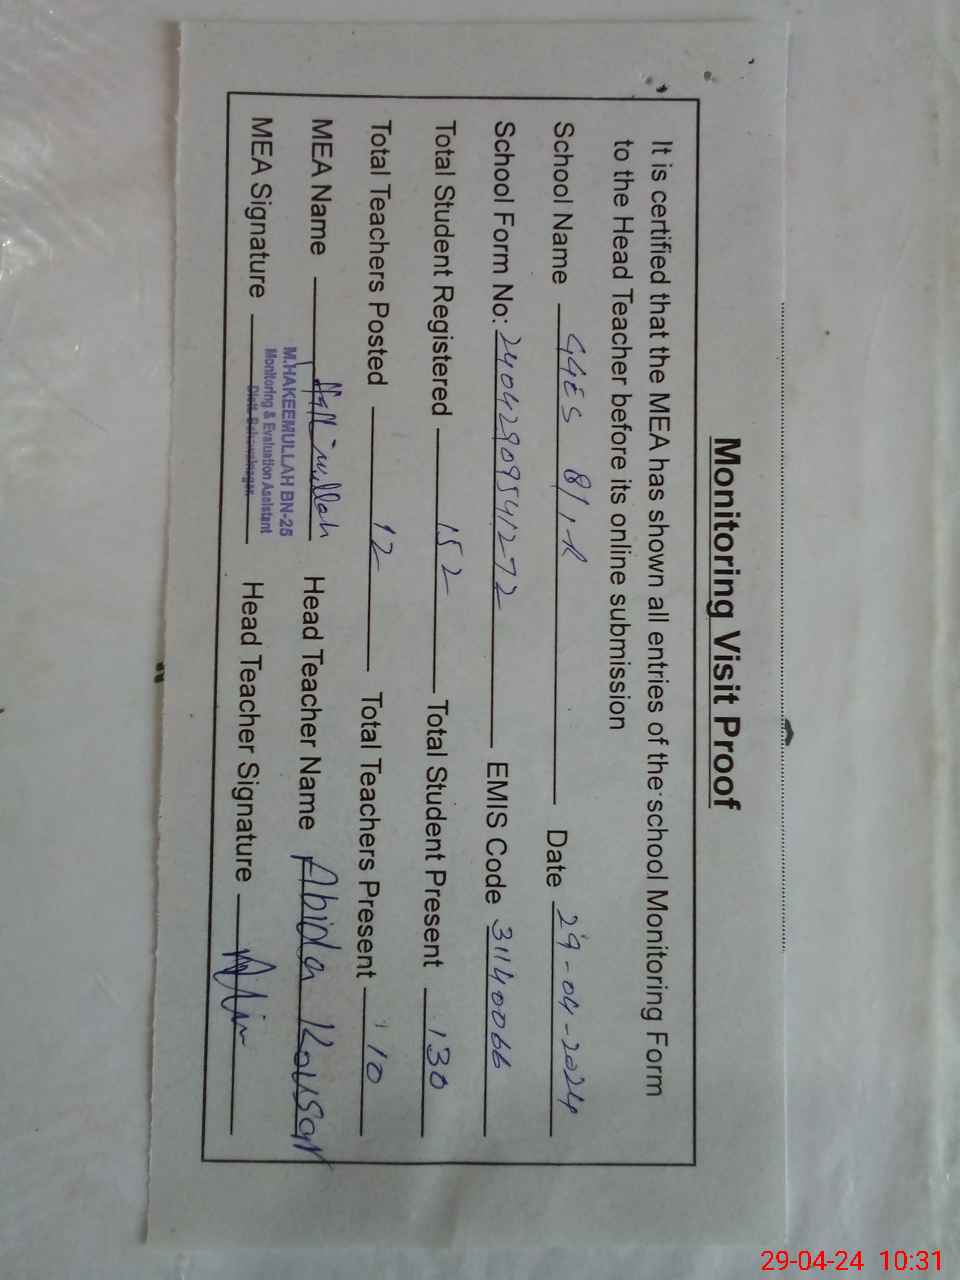 Monitoring Visit Proof
It is certified that the MEA has shown all entries of the school Monitoring Form
to the Head Teacher before its online submission
School Name GGES 8/1-R Date 29-04-2024
School Form No: 24042909541272 EMIS Code 31140066
Total Student Registered 152 Total Student Present 130
Total Teachers Posted 12 Total Teachers Present 10
MEA Name Head Teacher Name Abida Kousar
M.HAKEEMULLAH BN-25
Monitoring & Evaluation Assistant
Distt. Bahawalnagar
MEA Signature Head Teacher Signature
29-04-24 10:31